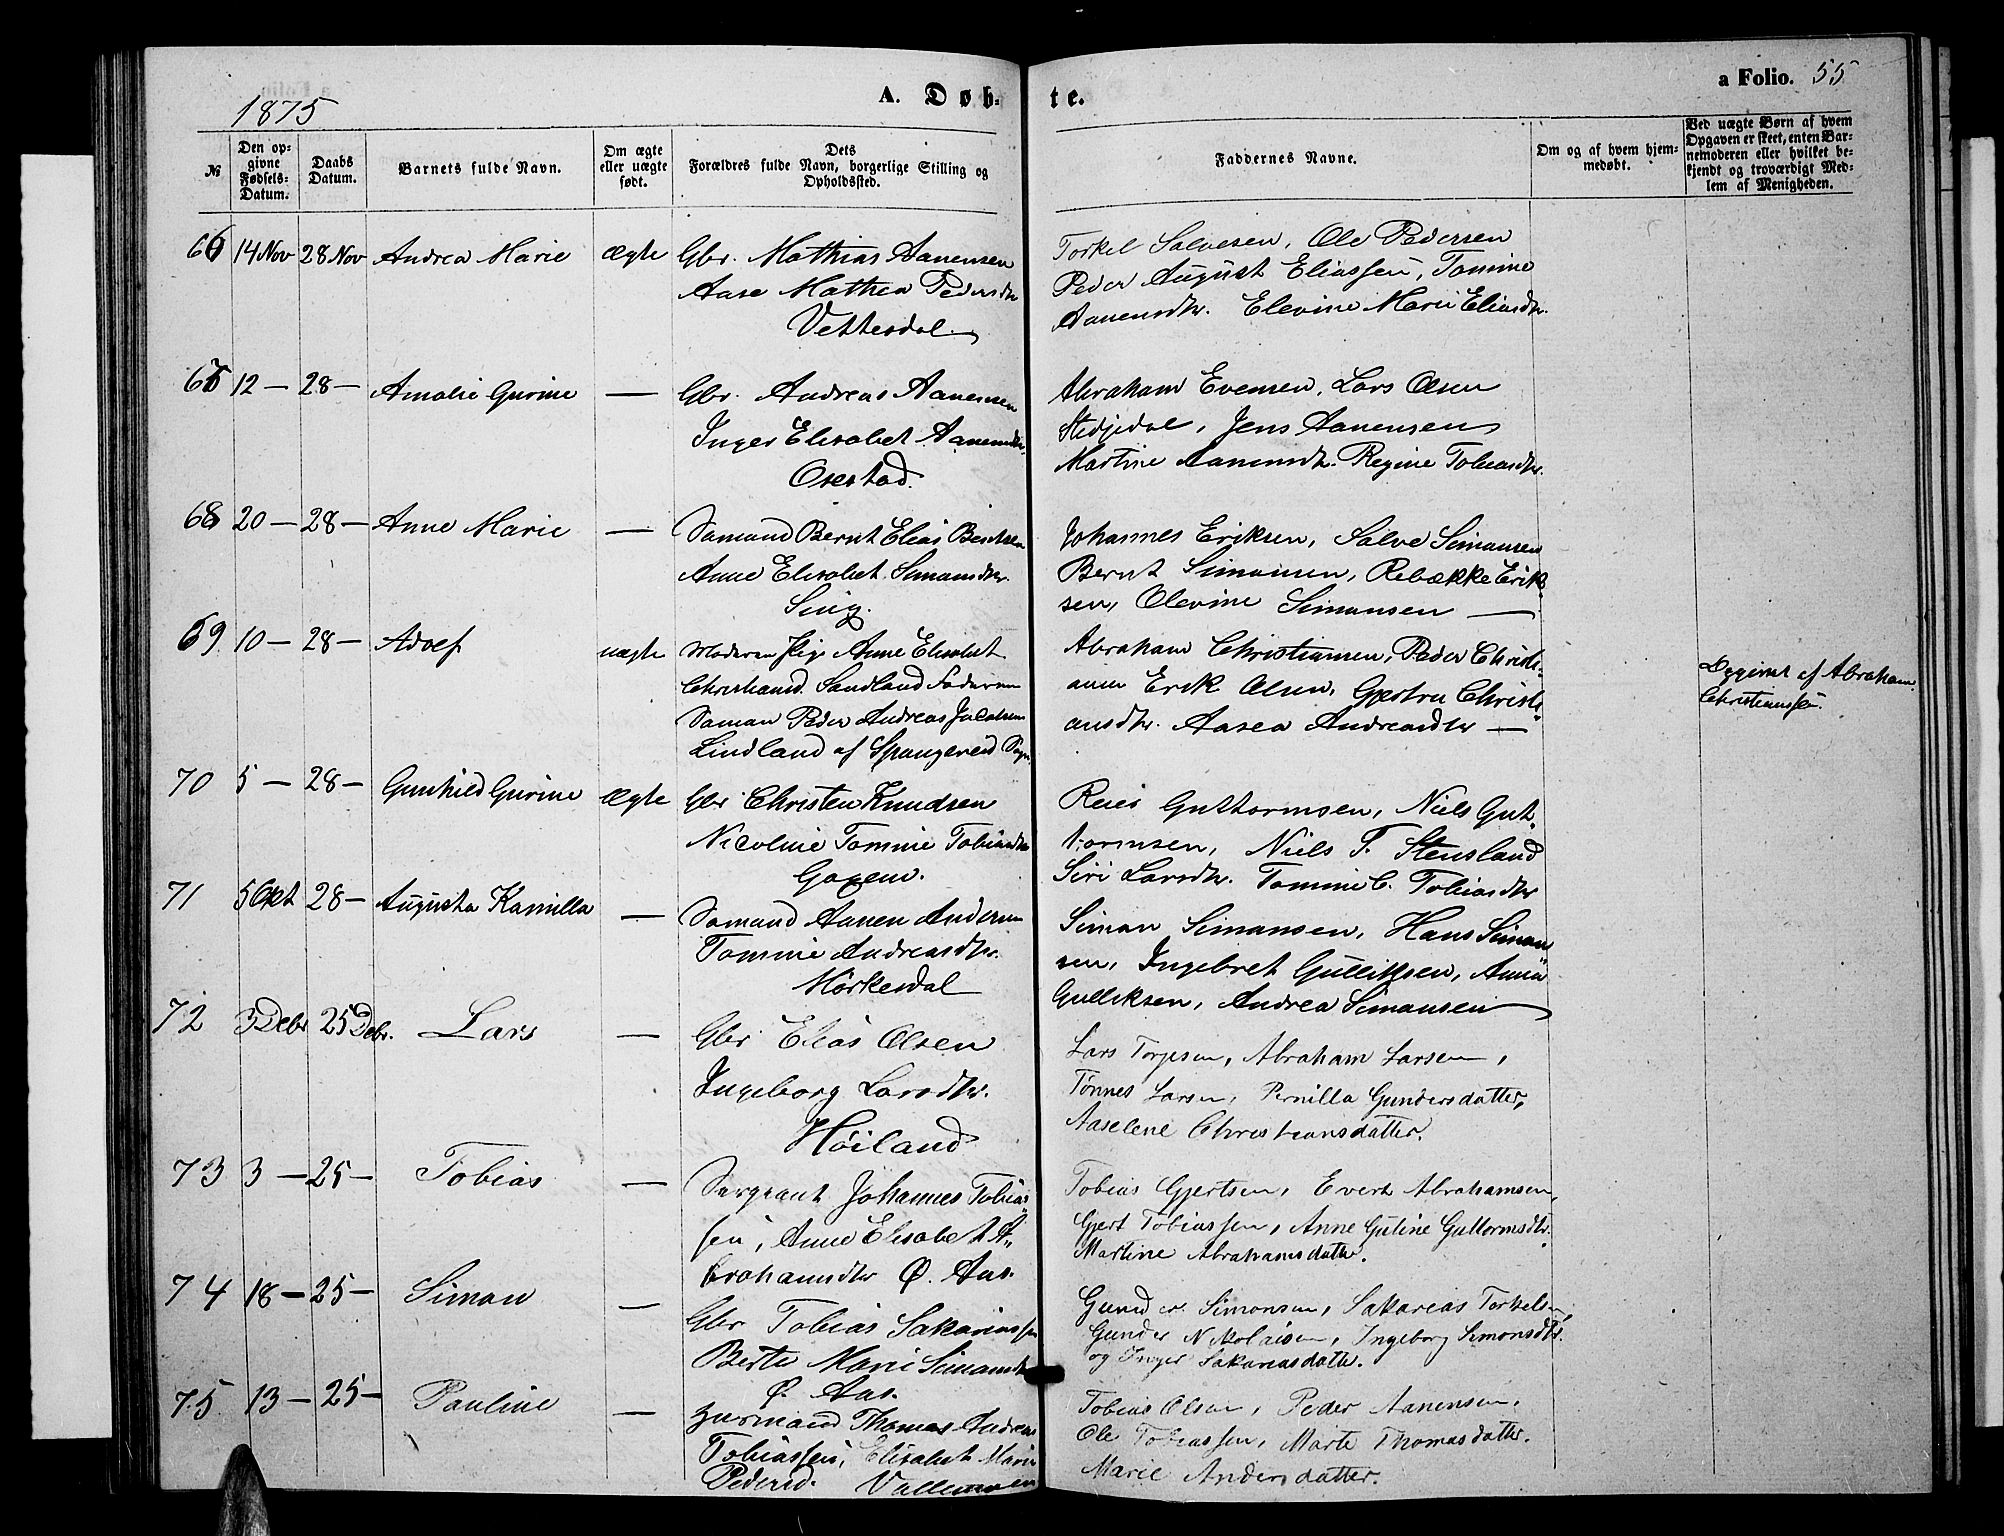 1875
A. Døb-
te.
a Folio. 55
№
Den op-
givne
Fødsels-
Datum.
Daabs
Datum.
Barnets fulde Navn.
Om ægte
eller uægte
født.
Dets
Forældres fulde Navn, borgerlige Stilling og
Opholdssted.
Faddernes Navne.
Om og af hvem hjem-
medøbt.
Ved uægte Børn af hvem
Opgaven er skeet, enten Bar-
nemoderen eller hvilket be-
kjendt og troværdigt Med-
lem af Menigheden.
66 14 Nov 28 Nov Andrea Marie ægte Gbr. Mathias Aanensen
Aase Mathea Pedersdtr
Vettesdal
Torkel Salvesen, Ole Pedersen
Peder August Eliassen, Tomine
Aanensdtr. Elevine Marie Eliasdtr.
67 12 — 28 — Amalie Gurine — Gbr. Andreas Aanensen
Inger Elisabet Aanensdtr.
Osestad.
Abraham Evensen, Lars Olsen
Stedjedal, Jens Aanensen
Martine Aanensdtr. Regine Tobiasdtr.
68 20 — 28 — Anne Marie — Sømand Bernt Elias
Anne Elisabet Simonsdtr.
Johannes Eriksen, Salve Simonsen
Bernt Simonsen, Rebække Erik
sen, Olevine Simonsen —
69 10 — 28 — Adolf uægte Moderen Pige Anne Elisabet
Christiansd. Sandland Faderen
Søman Peder Andreas Jacobsen
Lindland af Spangereid Sogn
Abraham Christiansen, Peder Christi-
ansen Erik Olsen, Gjertru Christi-
ansdtr. Aasea Andreasdtr —
Opgivet af Abraham
Christianssen.
70 5 — 28 — Gunhild Gurine ægte Gbr Christen Knudsen
Nicoline Tomine Tobiasdtr
Reier Guttormsen, Niels Gut-
tormsen, Niels T. Stensland
Siri Larsdtr. Tomine C. Tobiasdtr
71 5 Okt 28 — Augusta Kamilla — Sømand Aanen Andersen
Tomine Andreasdtr.
Mørkesdal
Simon Simonsen, Hans Simon
sen, Ingebret Gulliksen, Anna
Gulliksen, Andrea Simonsen
72 3 Debr 25 Debr. Lars — Gbr Elias Olsen
Ingeborg Larsdtr.
Høiland
Lars Torjesen, Abraham Larsen,
Tønnes Larsen, Pernilla Gundersdatter,
Aaselene Christiansdatter.
73 3 — 25 — Tobias — Sergeant Johannes Tobias
sen, Anne Elisabet A-
brahamsdtr Ø. Aas.
Tobias Gjertsen, Evert Abrahamsen,
Gjert Tobiassen, Anne Gutine Guttormsdtr.
Martine Abrahamsdatter.
74 18 — 25 — Simon — Gbr Tobias Sakariassen
Berte Marie Simonsdtr
Ø. Aas.
Gunder Simonsen, Sakarias Torkelsen,
Gunder Nikolaisen, Ingeborg Simonsdtr.
og Inger Sakariasdatter.
75 13 — 25 — Pauline — Husmand Thomas Andreas
Tobiassen, Elisabet Marie
Pedersd. Vallemoen
Tobias Olsen, Peder Aanensen,
Ole Tobiassen, Marte Thomasdatter.
Marie Andersdatter.